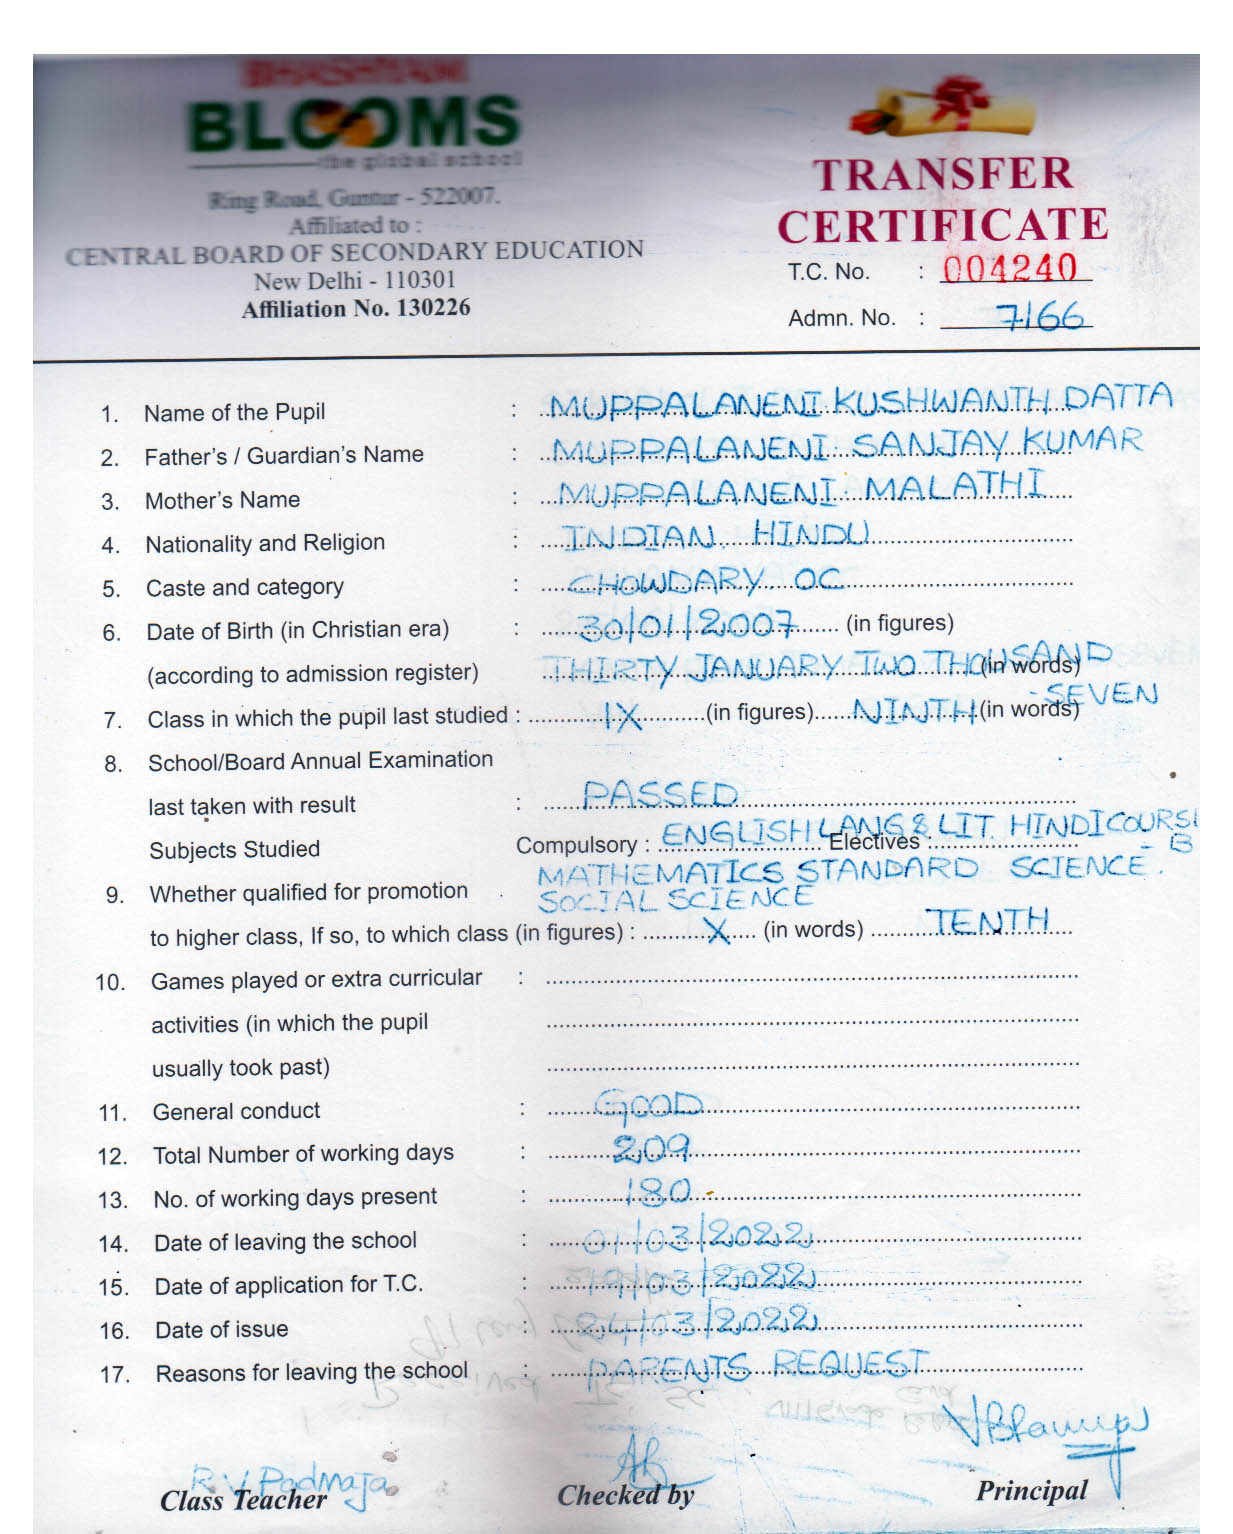 BHASHYAM
BLOOMS
the global school
Ring Road, Guntur - 522007.
Affiliated to :
CENTRAL BOARD OF SECONDARY EDUCATION
New Delhi - 110301
Affiliation No. 130226
TRANSFER
CERTIFICATE
T.C. No. : 004240
Admn. No. : 7166
1. Name of the Pupil : MUPPALANENI KUSHWANTH DATTA
2. Father's / Guardian's Name : MUPPALANENI SANJAY KUMAR
3. Mother's Name : MUPPALANENI MALATHI
4. Nationality and Religion : INDIAN, HINDU
5. Caste and category : CHOWDARY OC
6. Date of Birth (in Christian era) : 30/01/2007 (in figures)
(according to admission register) THIRTY JANUARY TWO THOUSAND (in words)
- SEVEN
7. Class in which the pupil last studied : IX (in figures) NINTH (in words)
8. School/Board Annual Examination
last taken with result : PASSED
Subjects Studied Compulsory : ENGLISH LANG & LIT HINDI COURSE Electives :
- B
MATHEMATICS STANDARD SCIENCE.
9. Whether qualified for promotion SOCIAL SCIENCE
to higher class, If so, to which class (in figures) : X (in words) TENTH
10. Games played or extra curricular :
activities (in which the pupil
usually took past)
11. General conduct : GOOD
12. Total Number of working days : 209
13. No. of working days present : 180
14. Date of leaving the school : 01/03/2022
15. Date of application for T.C. : 19/03/2022
16. Date of issue : 24/03/2022
17. Reasons for leaving the school : PARENTS REQUEST
R.V. Padmaja
Class Teacher Checked by Principal